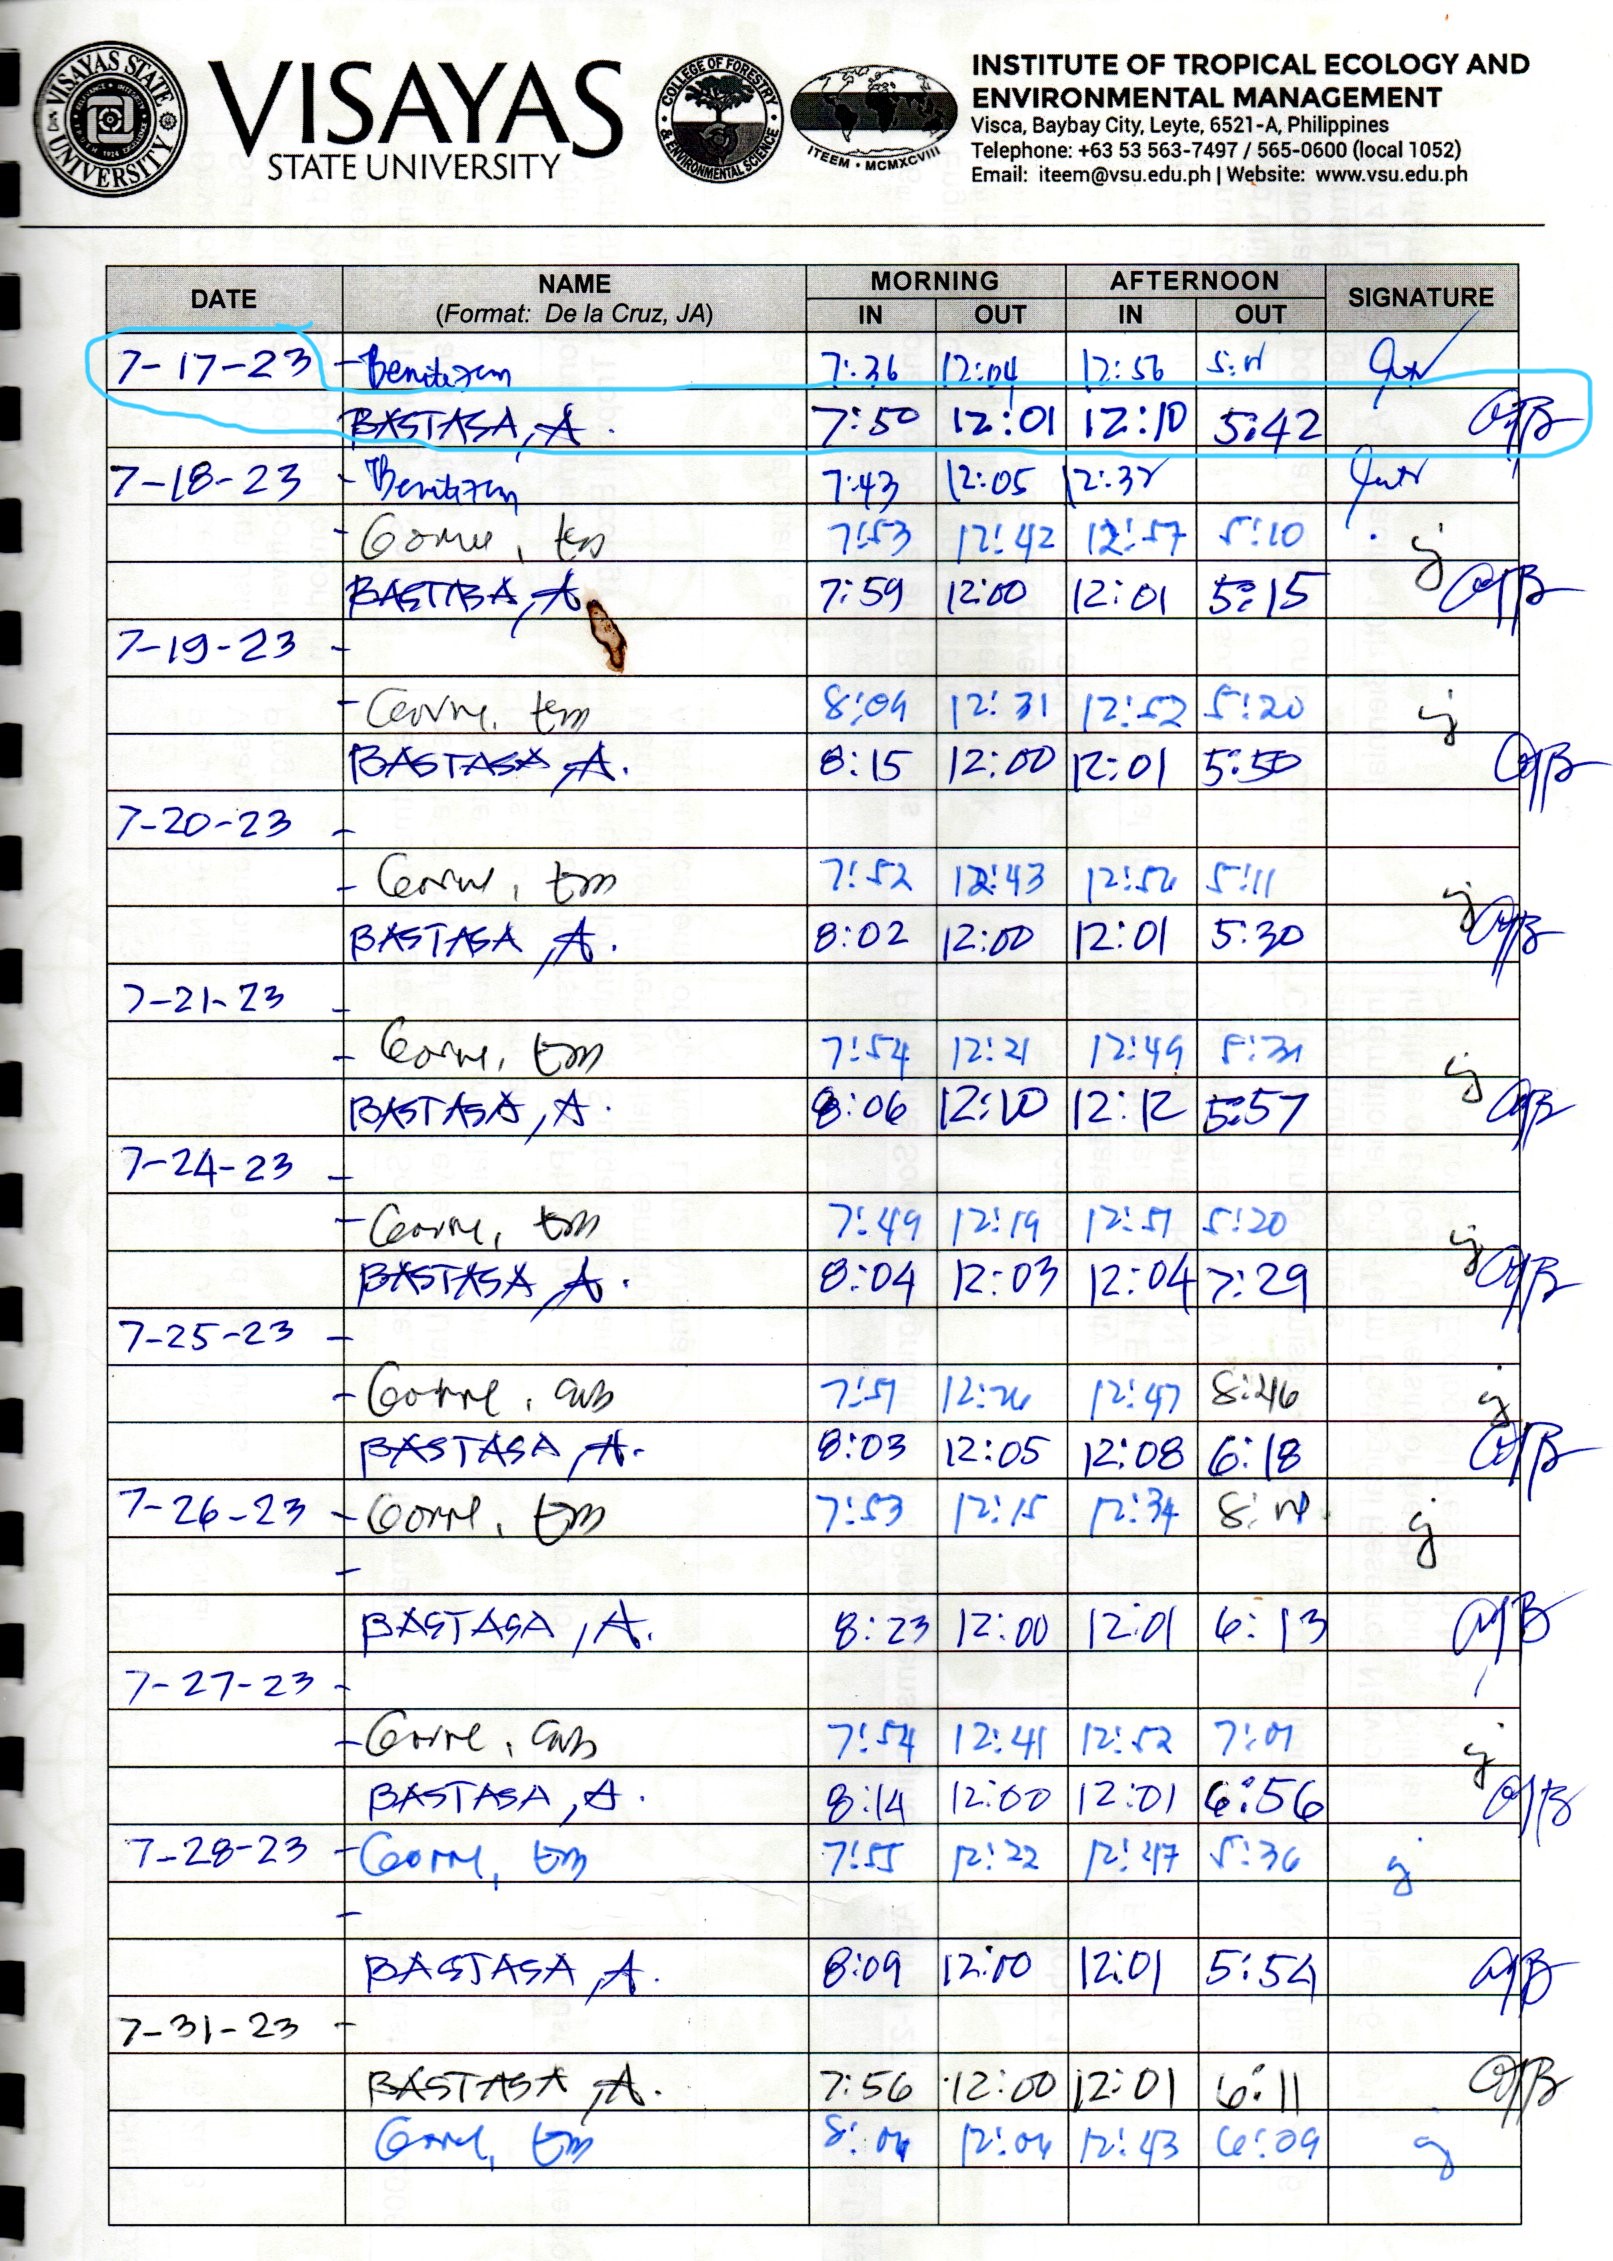 VISAYAS STATE UNIVERSITY
VISAYAS
STATE UNIVERSITY
COLLEGE OF FORESTRY & ENVIRONMENTAL SCIENCE
ITEEM • MCMXCVIII
INSTITUTE OF TROPICAL ECOLOGY AND
ENVIRONMENTAL MANAGEMENT
Visca, Baybay City, Leyte, 6521-A, Philippines
Telephone: +63 53 563-7497 / 565-0600 (local 1052)
Email: iteem@vsu.edu.ph | Website: www.vsu.edu.ph
DATE NAME MORNING AFTERNOON SIGNATURE
(Format: De la Cruz, JA) IN OUT IN OUT
7-17-23 - 7:36 12:04 12:56
BASTASA, A. 7:50 12:01 12:10 5:42
7-18-23 - 7:43 12:05
- 7:53 12:42 12:57 5:10
BASTASA, A 7:59 12:00 12:01 5:15
7-19-23 -
- 8:09 12:31 12:52 5:20
BASTASA, A. 8:15 12:00 12:01 5:50
7-20-23 -
- 7:52 12:43 12:56 5:11
BASTASA, A. 8:02 12:00 12:01 5:30
7-21-23 -
- 7:54 12:21 12:49 5:31
BASTASA, A. 8:06 12:10 12:12 5:57
7-24-23 -
- 7:49 12:19 12:51 5:20
BASTASA, A. 8:04 12:03 12:04 7:29
7-25-23 -
- Gorre, 7:51 12:26 12:47 8:46
BASTASA, A. 8:03 12:05 12:08 6:18
7-26-23 - Gorre, tm 7:53 12:15 12:34
-
BASTASA, A. 8:23 12:00 12:01 6:13
7-27-23 -
- Gorre, 7:54 12:41 12:52 7:01
BASTASA, A. 8:14 12:00 12:01 6:56
7-28-23 - Gorre, tm 7:55 12:22 12:47 5:36
-
BASTASA, A. 8:09 12:00 12:01 5:54
7-31-23 -
BASTASA, A. 7:56 12:00 12:01 6:11
Gorre, tm 8:06 12:06 12:43 6:09